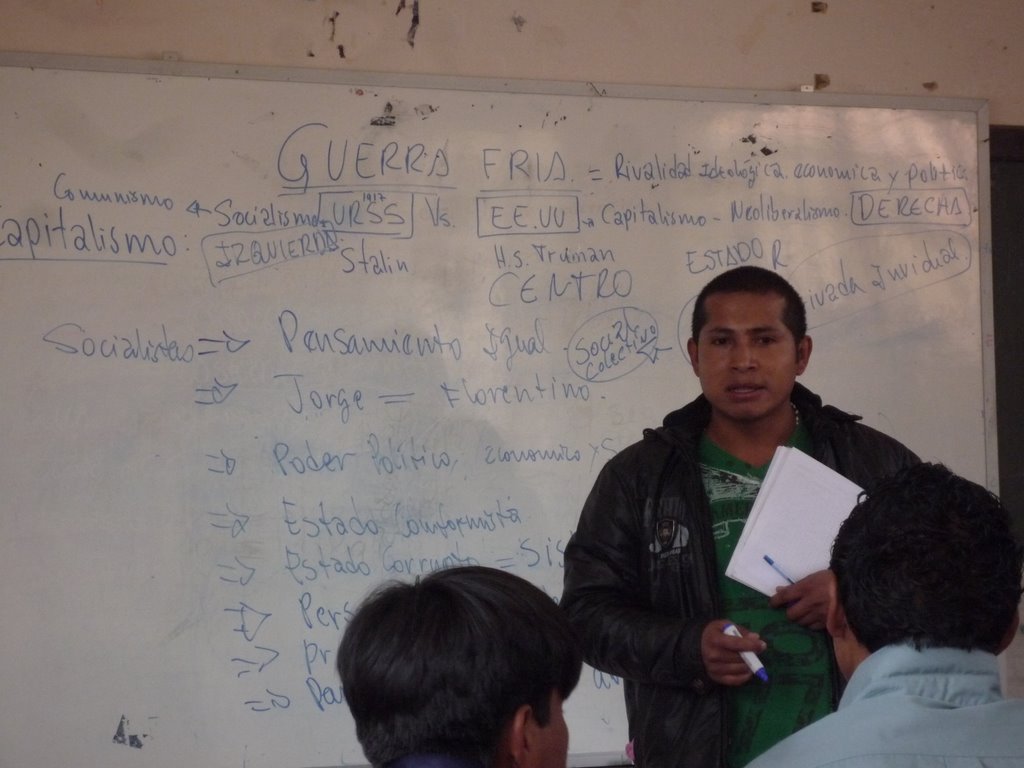 GUERRA FRIA = Rivalidad Ideológica, economica y política
Comunismo ← Socialismo 1917 URSS Vs. EE.UU → Capitalismo - Neoliberalismo. DERECHA
Capitalismo: IZQUIERDA Stalin H.S. Truman ESTADO R
CENTRO ivada Invidual.
Socialistas => Pensamiento Igual Social Colectivo
=> Jorge = Florentino.
=> Poder Político, economico y S
=> Estado Conformista
=> Estado Corrupto = Sis
=> Pers
=> Pr
=>